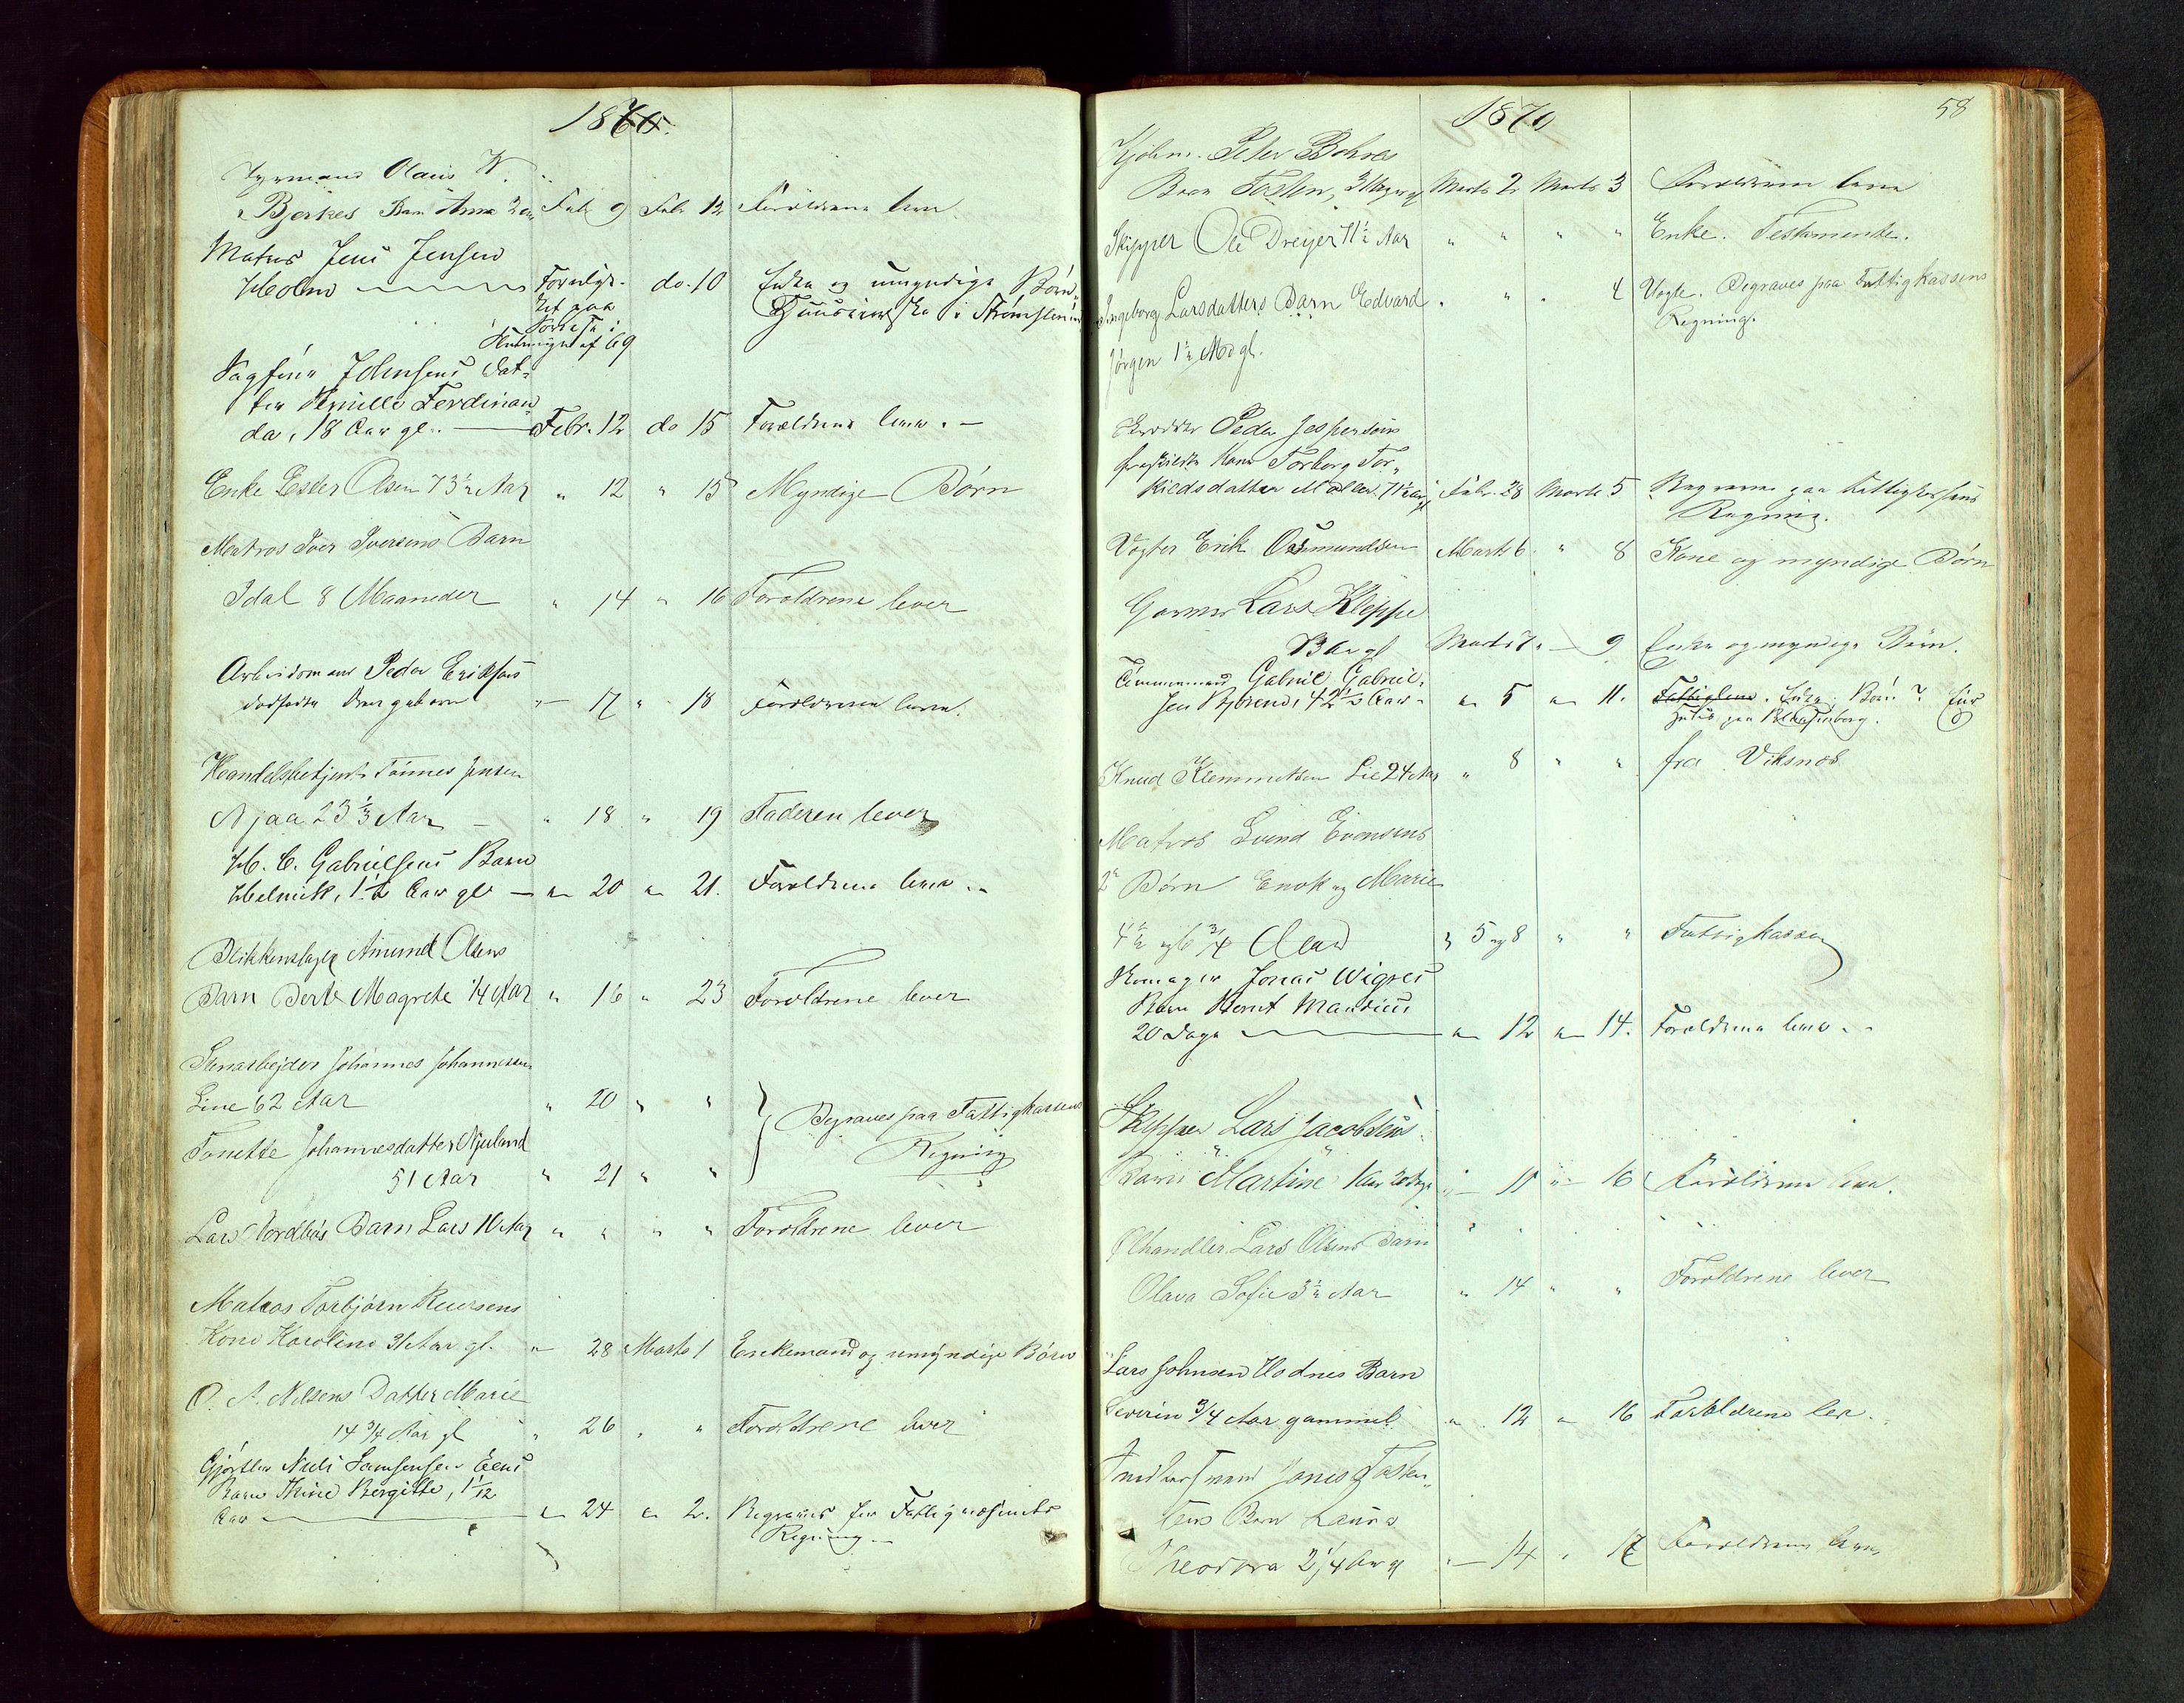 1870
Styrmand Olaus W.
Bjerkes Barn Anna 2 Aar Febr 9 Febr 12 Forældrene lever.
Matros Jens Jensen
Holm Forulyk- do. 10 Enke og umyndige Børn,
ket paa
i
af 69
Johnsens Dat-
ter Pernille Ferdinan
da, 18 Aar gl. Febr. 12 do 15 Forældrene lever. -
Enke Ester Olsen 73½ Aar " 12 " 15 Myndige Børn
Matros Iver Iversens Barn
Idal 8 Maaneder " 14 " 16 Forældrene lever
Arbeidsmand Peder Eriksens
dødfødte Drengebarn " 17 " 18 Forældrene lever.
Handelsbetjent Tønnes Jensen
Njaa 23⅓ Aar " 18 " 19 Faderen lever
H. C. Gabrielsens Barn
Helmik, 1½ Aar gl " 20 " 21. Forældrene lever.
Blikkenslager Amund Olsens
Barn Berte Magrete 14 Aar " 16 " 23 Forældrene lever
Stenarbejder Johannes Johannessen
Line 62 Aar " 20 " "
Begraves paa Fattigkassens
Tonette Johannesdatter Njuland
Regning
51 Aar " 21 " "
Lars Nordbøs Barn Lars 10 Aar " " " " Forældrene lever
Matros Torbjørn Reiersens
Kone Karoline 31 Aar gl. " 28 Marts 1 Enkemand og umyndige Børn
O. A. Nilsens Datter Marie
14 3/4 Aar gl " 26 " " Forældrene lever
Gjørtler Niels Samsonsen Eens
Barn Thine Bergitte, 1 1/12
Aar " 24 " 2. Begraves for Fattigvæsenets
Regning -
1870 58
Peter Bohnes
Barn Tosten, Marts 2 Marts 3 Forældrene lever
Skipper Ole Dreyer 71½ Aar " " " " Enke. Testamente.
Ingeborg Larsdatters Barn Edvard " " " 4 Ugte. Begraves paa Fattigkassens
Regning.
Jørgen 1½ Md gl.
Peder Jespersens
fraskilte Kone Torborg Tor-
kildsdatter Møller 71½ Aar gl Febr. 28 Marts 5 Begraves paa Fattigkassens
Regning.
Vogter Erik Osmundsen Marts 6 " 8 Kone og myndige Børn
Garver Lars Kleppe
Aar gl Marts 7 " 9 Enke og myndige Børn.
Tømmermand Gabriel Gabriel-
sen Bjørend, 42½ Aar " 5 " 11. Enke. Børn?
Knud Klemmetsen Lie 24 Aar " 8 " " fra Viksnes
Matros Svend Evensens
2de Børn Enok og Marie
4½ og 6 3/4 Aar " 5 og 8 " " Fattigkassen
Skomager Jonas Wigres
Barn Bernt Mauritius
20 Dage " 12 " 14. Forældrene lever.
Skipper Lars Jacobsens
Barn Martine 1 Aar 20 Dage " 11 " 16 Forældrene lever.
Ølhandler Lars Olsens Barn
Olava Sofie 3½ Aar " 14 " " Forældrene lever
Lars Johnsen Hodnes Barn
Severin 3/4 Aar gammel " 12 " 16 Forældrene lev.
Jonas Tosten-
sens Barn Laura
Theodora 2 1/4 Aar gl " 14 " 17 Forældrene lever